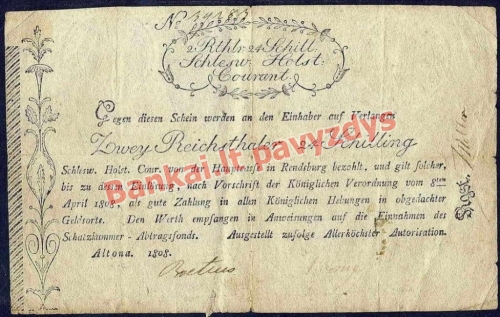 No 34383
2 Rthlr 24 Schill
Schlesw. Holst:
Courant.
Gegen diesen Schein werden an den Einhaber auf Verlangen
Zwey Reichsthaler 24 Schilling
Schlesw. Holst. Cour. von der Hauptcasse in Rendsburg bezahlt, und gilt solcher,
bis zu dessen Einlösung, nach Vorschrift der Königlichen Verordnung vom 8ten
April 1808, als gute Zahlung in allen Königlichen Hebungen in obgedachter
Geldsorte. Den Werth empfangen in Anweisungen auf die Einnahmen des
Schatzkammer-Abtragsfonds. Ausgestellt zufolge Allerhöchster Autorisation.
Altona. 1808.
bankai.lt pavyzdys